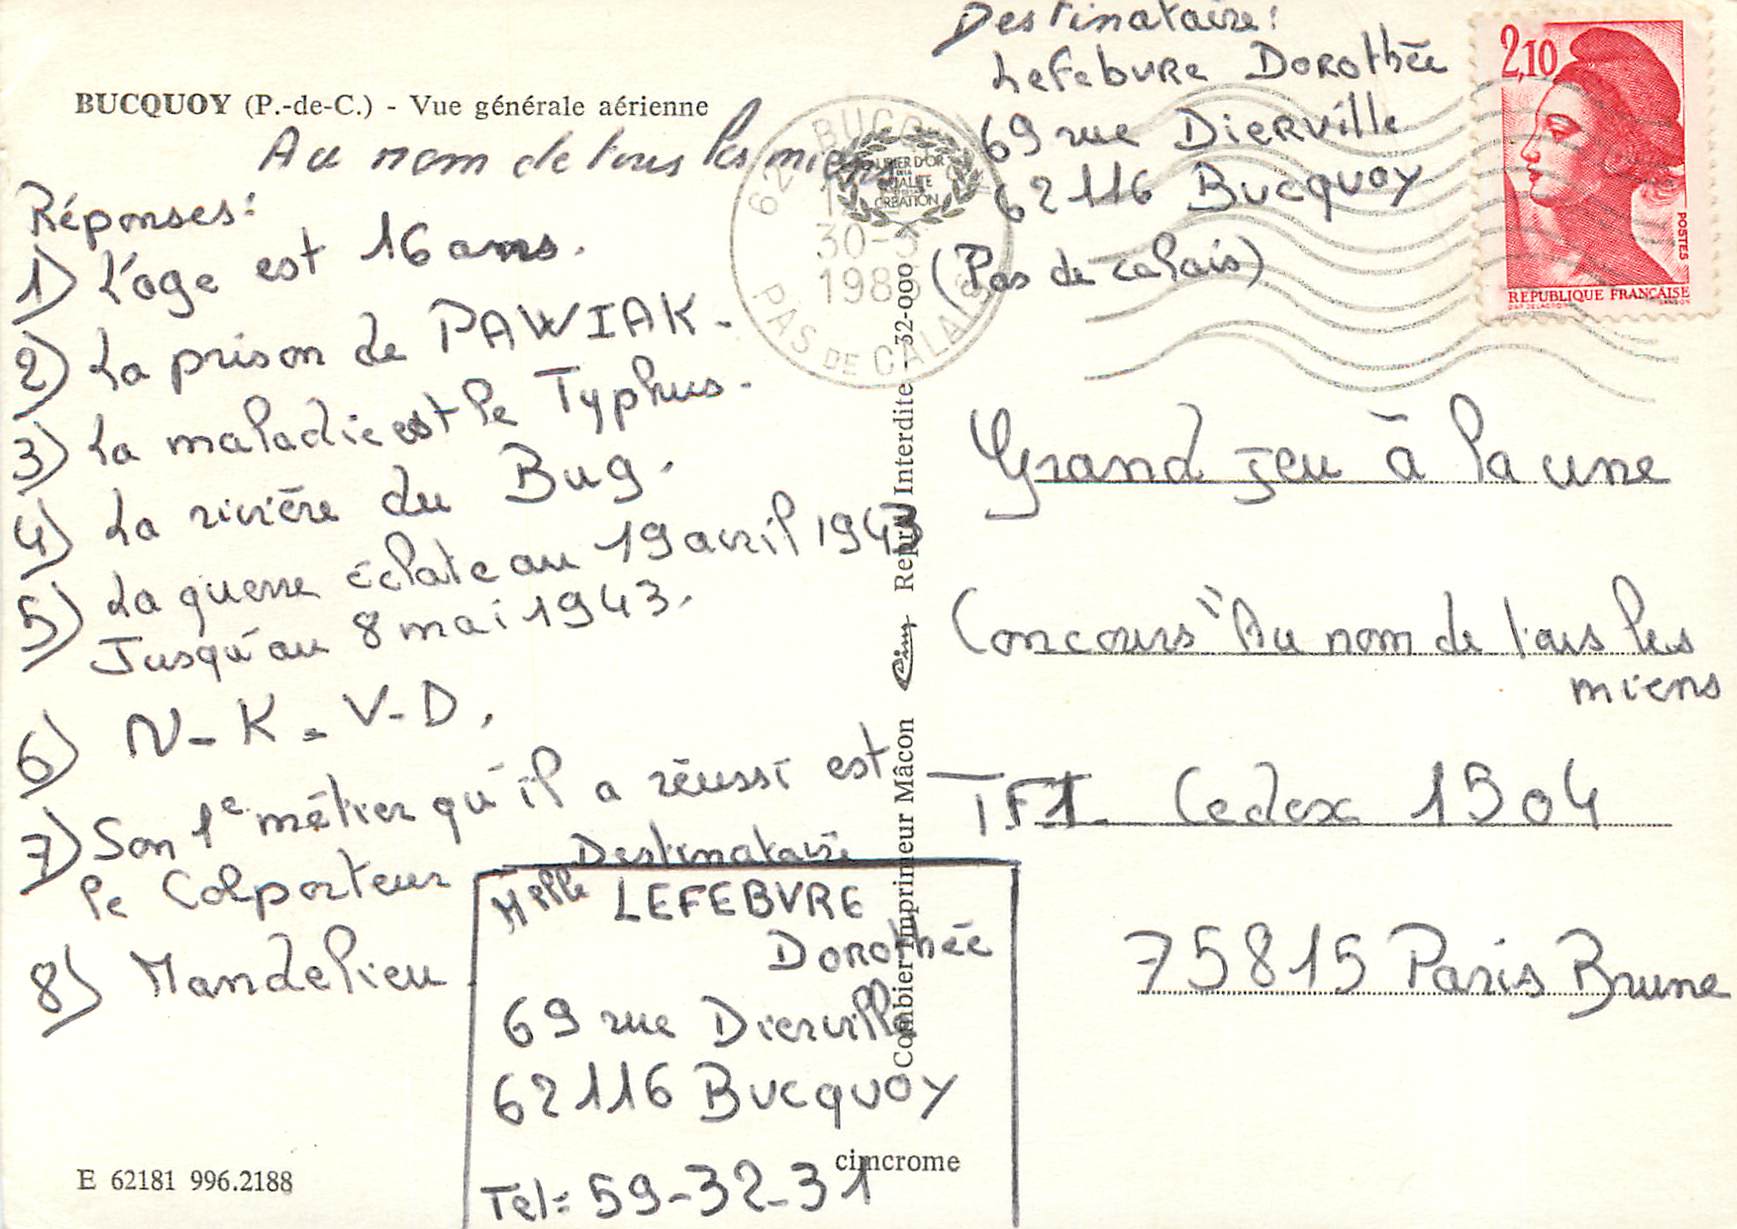 BUCQUOY (P.-de-C.) - Vue générale aérienne
Au nom de tous les miens
Réponses:
1) L'age est 16 ans.
2) La prison de PAWIAK.
3) La maladie est le Typhus.
4) La rivière du Bug.
5) La guerre éclate au 19 avril 1943
Jusqu'au 8 mai 1943.
6) N-K-V-D.
7) Son 1e métier qu'il a réussi est
le Colporteur
8) Mandelieu
Destinataire
Melle LEFEBVRE
DOROthée
69 rue Dierville
62116 Bucquoy
Tel: 59-32-31
E 62181 996.2188
cimcrome
Combier Imprimeur Mâcon Cim Repr. Interdite - 32-000
62 BUCQUOY
30-3
198
PAS DE CALAIS
LAURIER D'OR
DE LA
QUALITE
CREATION
Destinataire:
Lefebvre Dorothée
69 rue Dierville
62116 Bucquoy
(Pas de calais)
2,10
POSTES
REPUBLIQUE FRANÇAISE
Grand jeu à la une
Concours "Au nom de tous les
miens
TF1 Cedex 1504
75815 Paris Brune